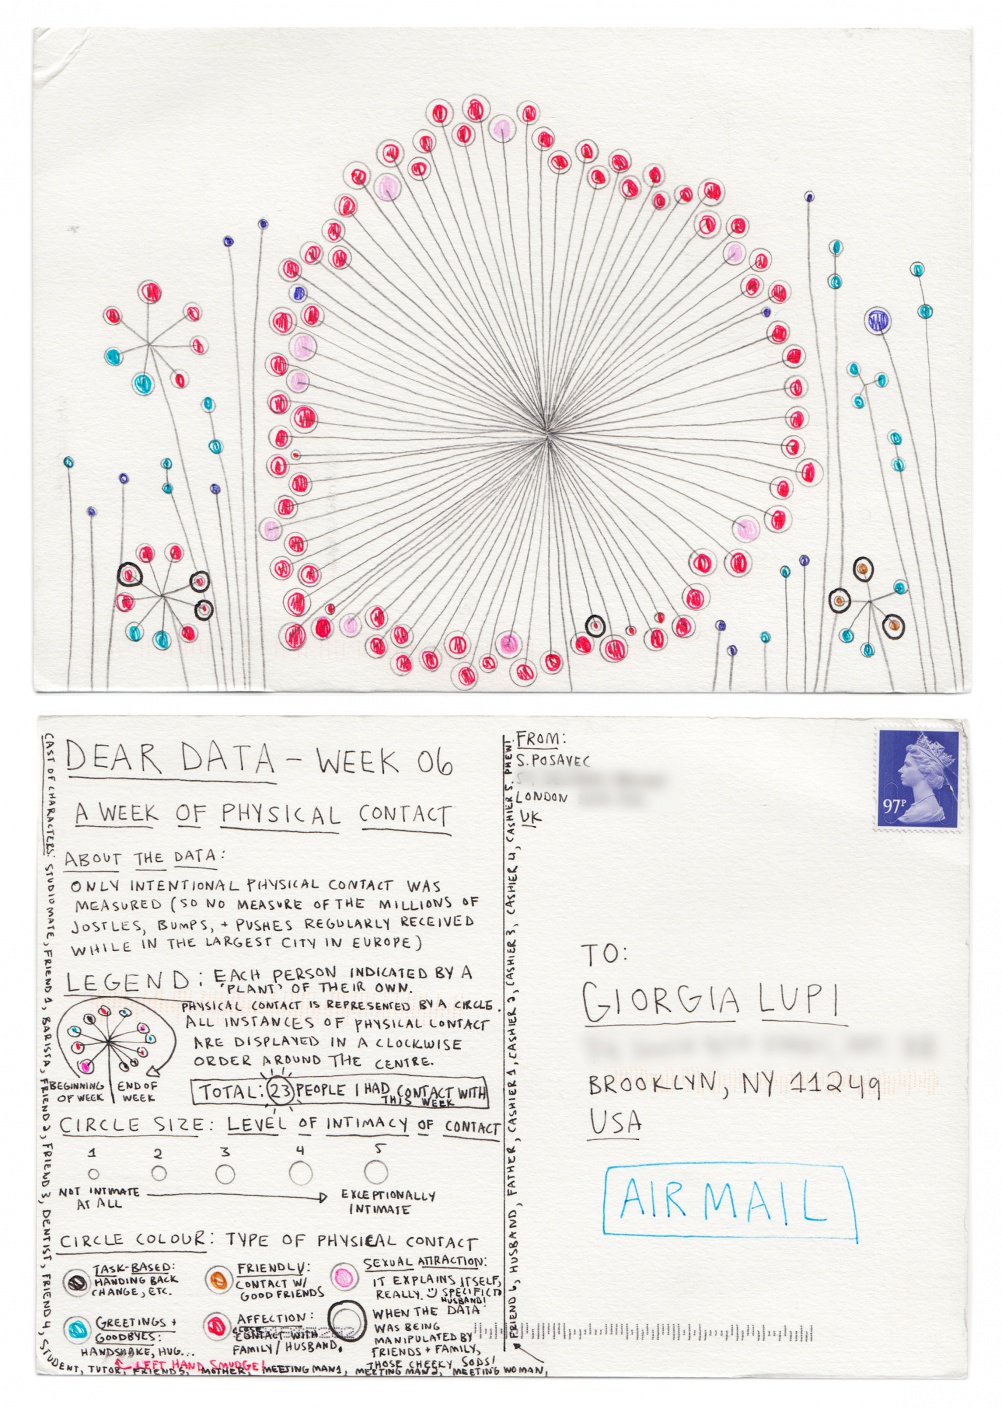 DEAR DATA - WEEK 06
A WEEK OF PHYSICAL CONTACT
ABOUT THE DATA:
ONLY INTENTIONAL PHYSICAL CONTACT WAS
MEASURED (SO NO MEASURE OF THE MILLIONS OF
JOSTLES, BUMPS, + PUSHES REGULARLY RECEIVED
WHILE IN THE LARGEST CITY IN EUROPE)
LEGEND: EACH PERSON INDICATED BY A
'PLANT' OF THEIR OWN.
PHYSICAL CONTACT IS REPRESENTED BY A CIRCLE.
ALL INSTANCES OF PHYSICAL CONTACT
ARE DISPLAYED IN A CLOCKWISE
ORDER AROUND THE CENTRE.
BEGINNING OF WEEK
END OF WEEK
TOTAL: 23 PEOPLE I HAD CONTACT WITH
THIS WEEK
CIRCLE SIZE: LEVEL OF INTIMACY OF CONTACT
1 2 3 4 5
NOT INTIMATE AT ALL
EXCEPTIONALLY INTIMATE
CIRCLE COLOUR: TYPE OF PHYSICAL CONTACT
TASK-BASED:
HANDING BACK
CHANGE, ETC.
FRIENDLY:
CONTACT W/
GOOD FRIENDS
SEXUAL ATTRACTION:
IT EXPLAINS ITSELF,
REALLY. SPECIFIC TO
HUSBAND!
GREETINGS +
GOODBYES:
HANDSHAKE, HUG...
AFFECTION:
CLOSE
CONTACT WITH
FAMILY/HUSBAND.
WHEN THE DATA
WAS BEING
MANIPULATED BY
FRIENDS + FAMILY,
THOSE CHEEKY SODS!
LEFT HAND SMUDGE!
CAST OF CHARACTERS: STUDIO MATE, FRIEND 1, BARISTA, FRIEND 2, FRIEND 3, DENTIST, FRIEND 4, STUDENT, TUTOR, FRIEND 5, MOTHER, MEETING MAN 1, MEETING MAN 2, MEETING WOMAN,
FRIEND 6, HUSBAND, FATHER, CASHIER 1, CASHIER 2, CASHIER 3, CASHIER 4, CASHIER 5. PHEW!
FROM:
S. POSAVEC
LONDON
UK
97P
TO:
GIORGIA LUPI
BROOKLYN, NY 11249
USA
AIR MAIL